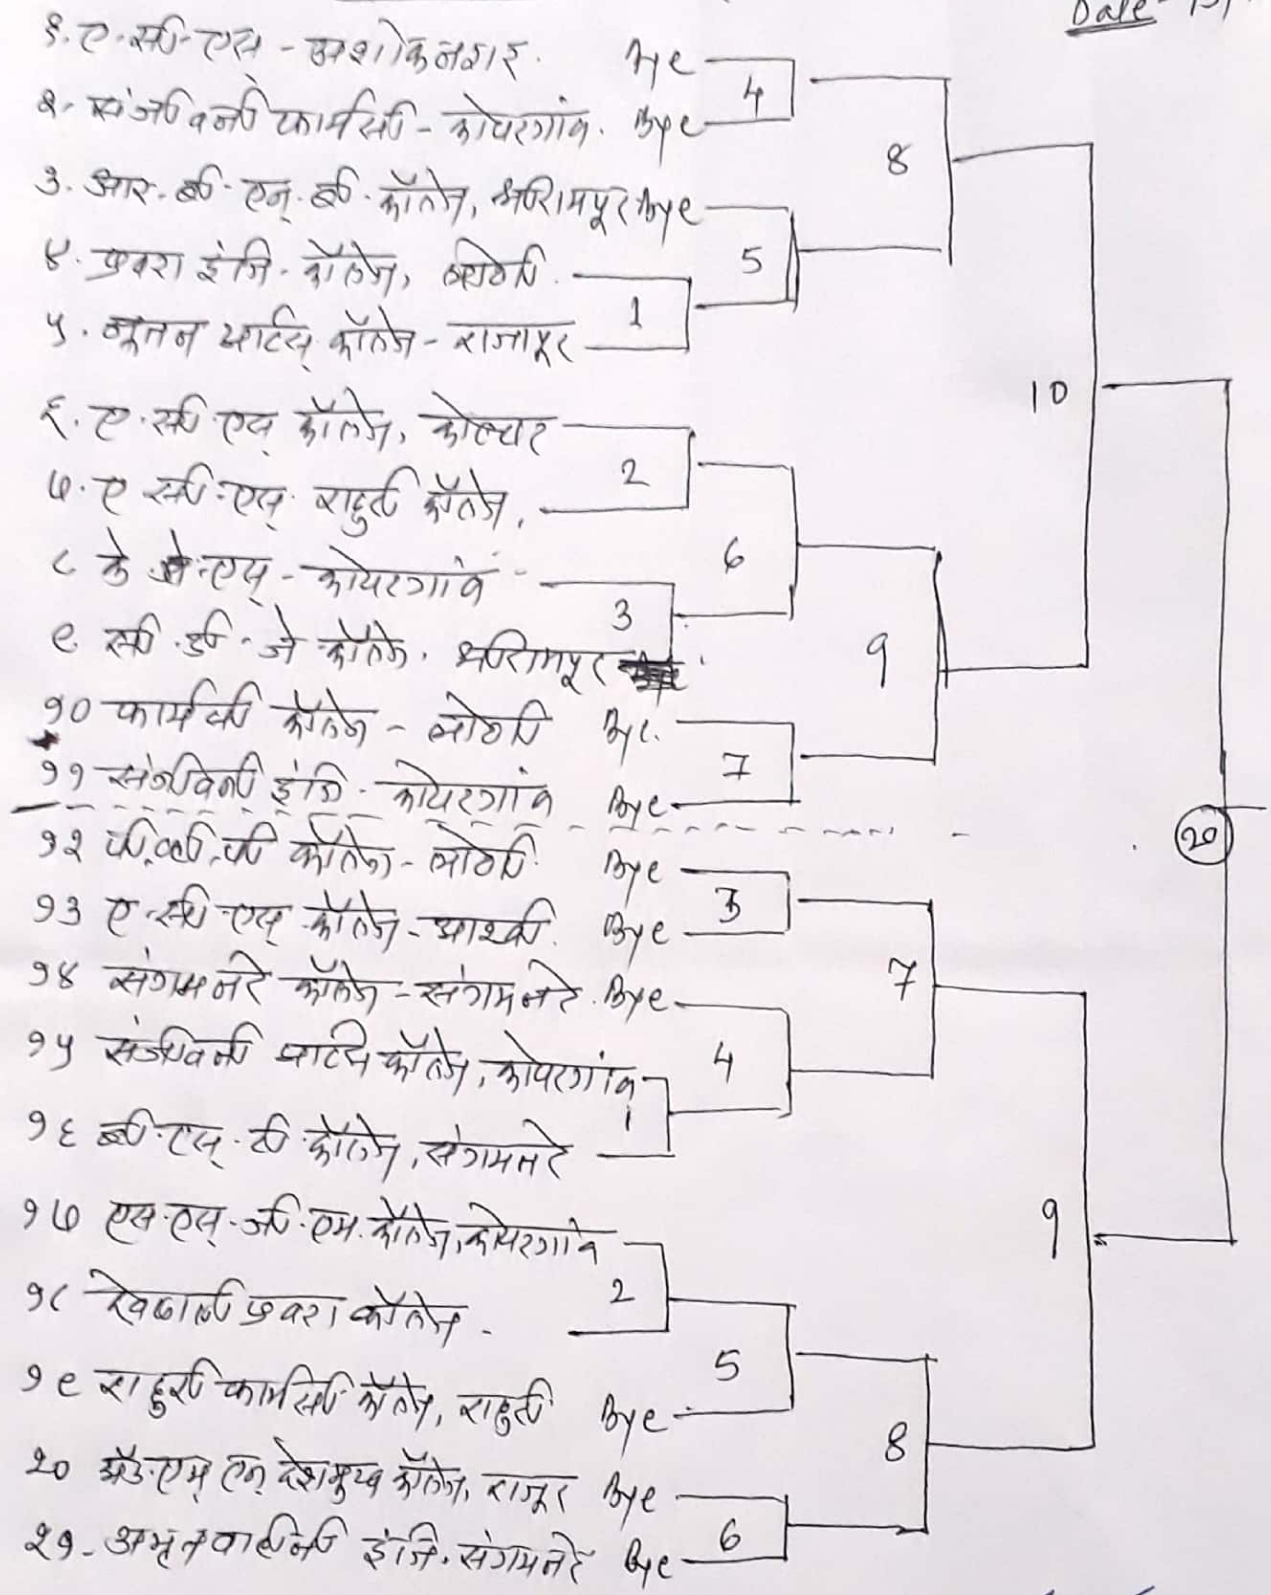 Date
१. ए. सी. एस - अशोकनगर. Bye
4
२. संजीवनी फार्मसी - कोपरगांव. Bye
8
३. आर. बी. एन. बी. कॉलेज, श्रीरामपूर Bye
5
४. प्रवरा इंजि. कॉलेज, लोणी.
1
५. नूतन आर्टस् कॉलेज - राजापूर
10
६. ए. सी. एस् कॉलेज, कोल्हार
2
७. ए सी. एस्. राहुरी कॉलेज.
6
८ के. जे. एस् - कोपरगांव
3
९ सी. डी. जे कॉलेज. श्रीरामपूर
9
१० फार्मसी कॉलेज - लोणी Bye.
7
११ संजीवनी इंजि. कोपरगांव Bye
20
१२ पी. व्ही. पी कॉलेज - लोणी Bye
3
१३ ए. सी. एस् कॉलेज - आश्वी. Bye
7
१४ संगमनेर कॉलेज - संगमनेर. Bye
4
१५ संजीवनी आर्टस कॉलेज, कोपरगांव
1
१६ बी. एस्. टी. कॉलेज, संगमनेर
9
१७ एस. एस्. जी. एम. कॉलेज, कोपरगांव
2
१८ देवळाली प्रवरा कॉलेज.
5
१९ राहुरी फार्मसी कॉलेज, राहुरी Bye
8
२० अॅड. एम् एन्. देशमुख कॉलेज, राजूर Bye
6
२१. अमृतवाहिनी इंजि. संगमनेर Bye